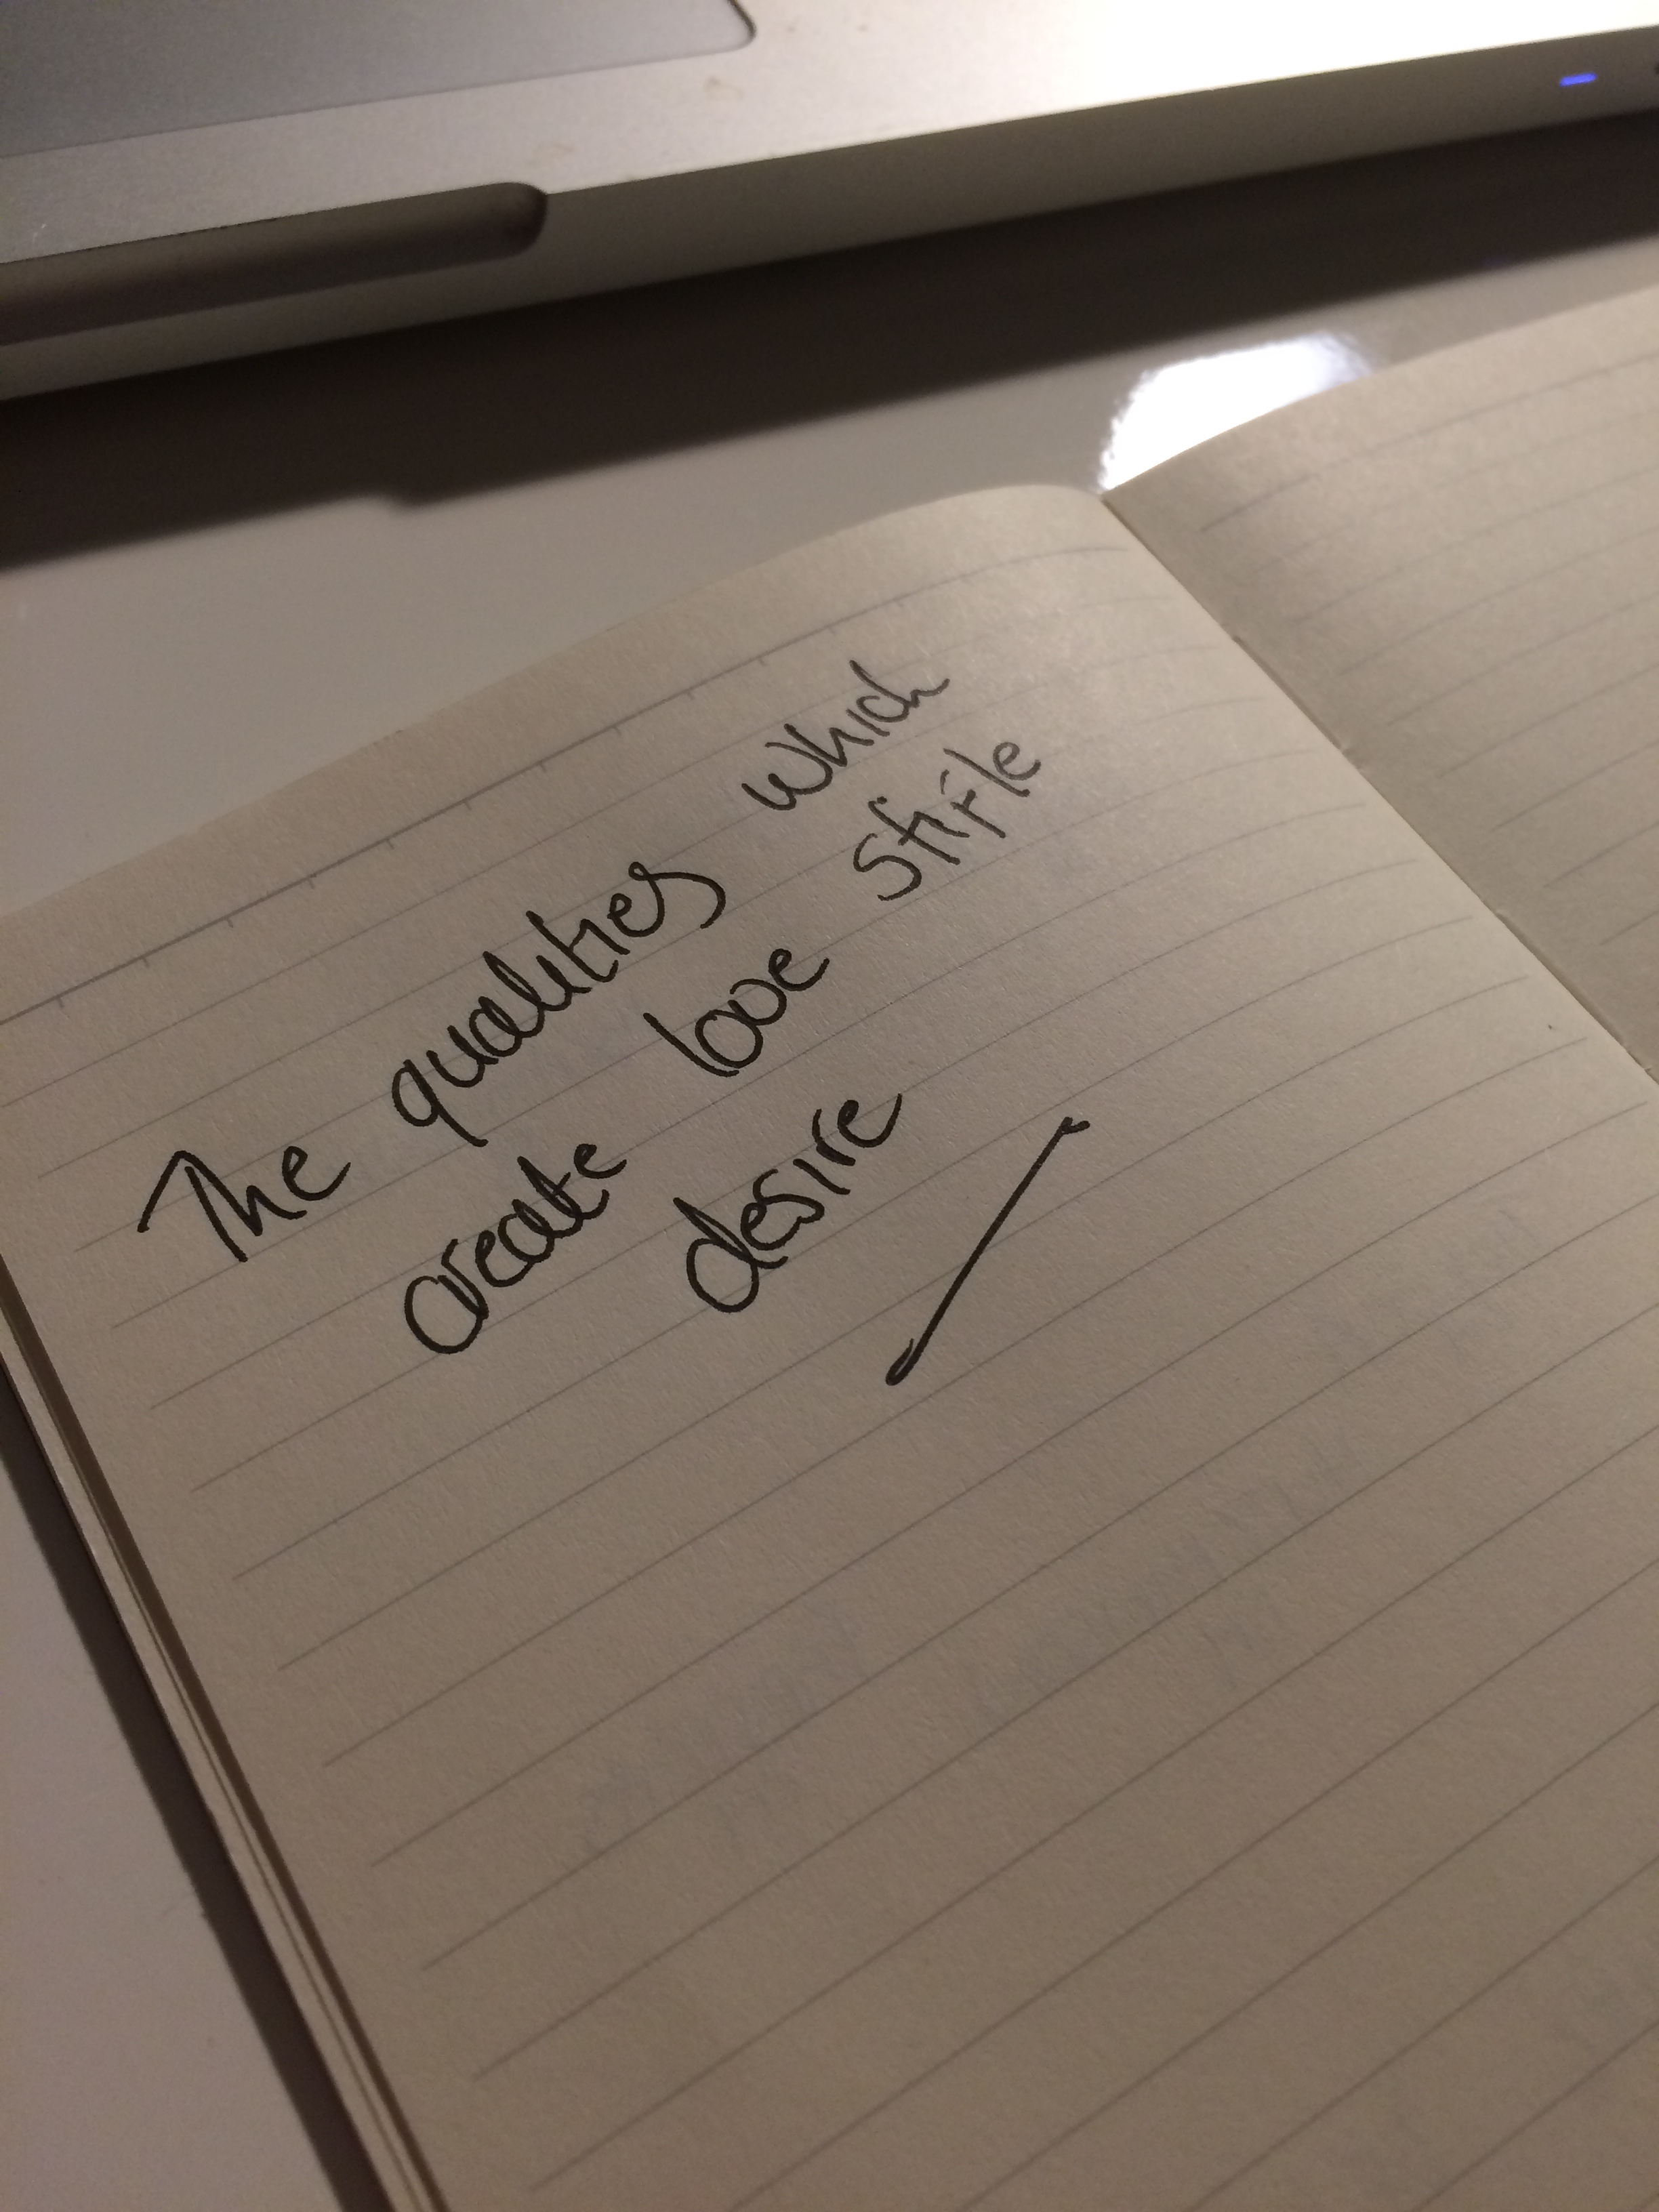 The qualities which
create love stifle
desire